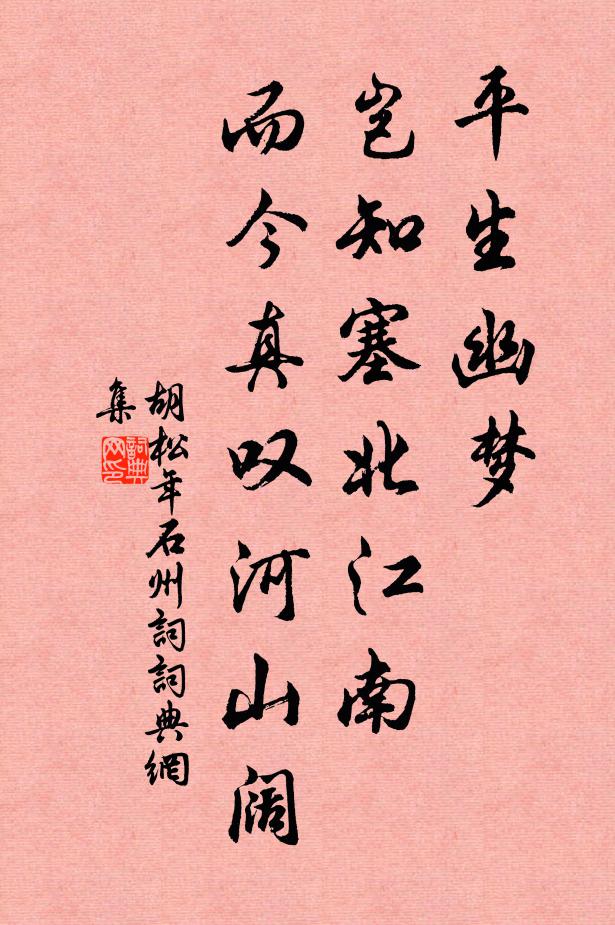 平生幽梦
岂知塞北江南
而今真叹河山阔
胡松年石州詞詞典網
集
詞典网印